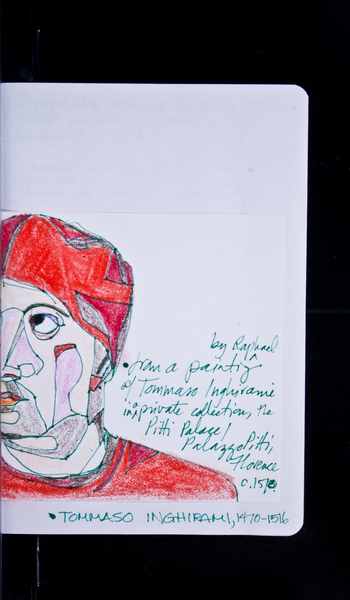 by Raphael
• from a painting
of Tommaso Inghirami
in private collection, The
Pitti Palace/
Palazzo Pitti,
Florence
c.1510
• TOMMASO INGHIRAMI, 1470-1516